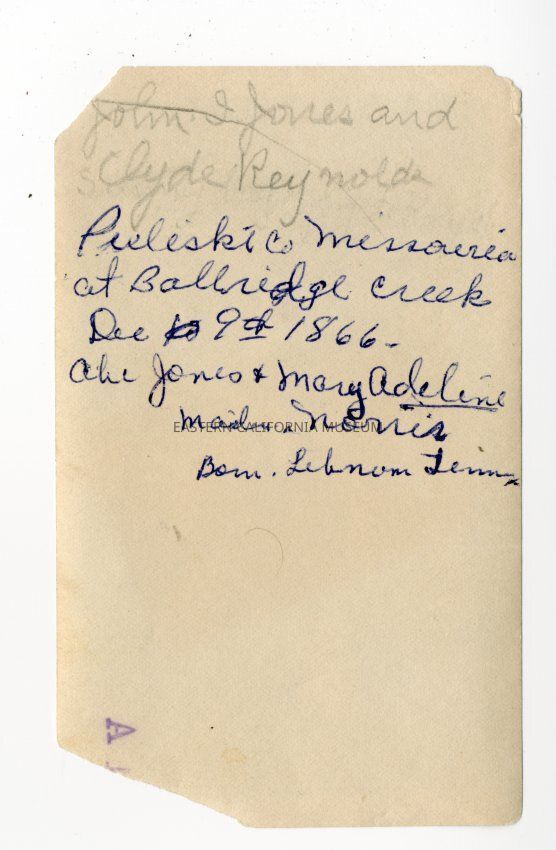 John I Jones and
Clyde Reynolds
Puliski Co Missouria
at Ballridge Creek
Dec 9th 1866.
Abe Jones & Mary Adeline
Maiden Norris
EASTERN CALIFORNIA MUSEUM
Born. Lebnom Tenn.
A